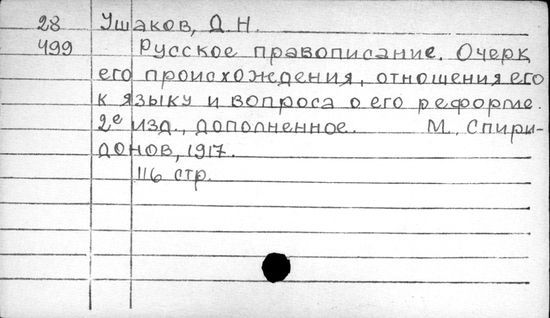 28 Ушаков, Д.Н.
499 Русское правописание. Очерк
его происхождения, отношения его
к языку и вопроса о его реформе.
2е изд., дополненное. М., Спири-
донов, 1917.
116 стр.